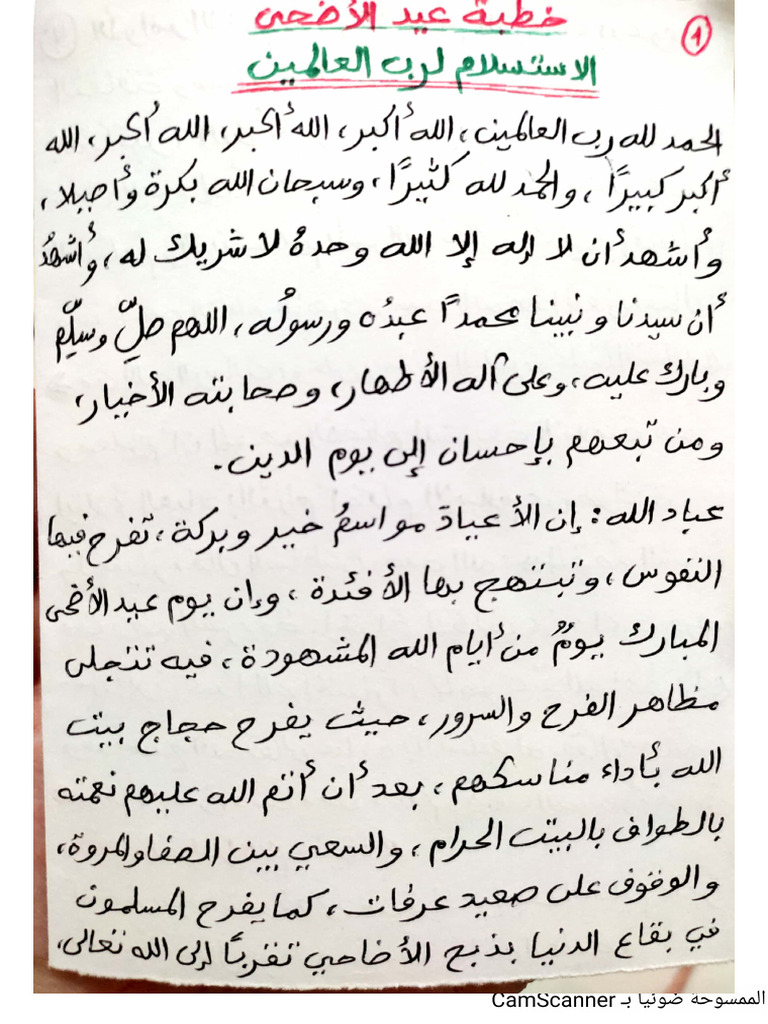 خطبة عيد الأضحى
(1)
الاستسلام لرب العالمين
الحمد لله رب العالمين، الله أكبر، الله أكبر، الله أكبر، الله
أكبر كبيرًا، والحمد لله كثيرًا، وسبحان الله بكرة وأصيلا،
وأشهد أن لا إله إلا الله وحدهُ لا شريك له، وأشهدُ
أن سيدنا ونبينا محمداً عبدُه ورسولُه، اللهم صلِّ وسلِّم
وبارك عليه، وعلى آله الأطهار، وصحابته الأخيار،
ومن تبعهم بإحسان إلى يوم الدين.
عباد الله: إن الأعيادَ مواسمُ خير وبركة، تفرح فيها
النفوس، وتبتهج بها الأفئدة، وإن يوم عيد الأضحى
المبارك يومٌ من أيام الله المشهودة، فيه تتجلى
مظاهر الفرح والسرور، حيث يفرح حجاج بيت
الله بأداء مناسكهم، بعد أن أتم الله عليهم نعمته
بالطواف بالبيت الحرام، والسعي بين الصفا والمروة،
والوقوف على صعيد عرفات، كما يفرح المسلمون
في بقاع الدنيا بذبح الأضاحي تقربًا إلى الله تعالى،
الممسوحة ضوئيا بـ CamScanner